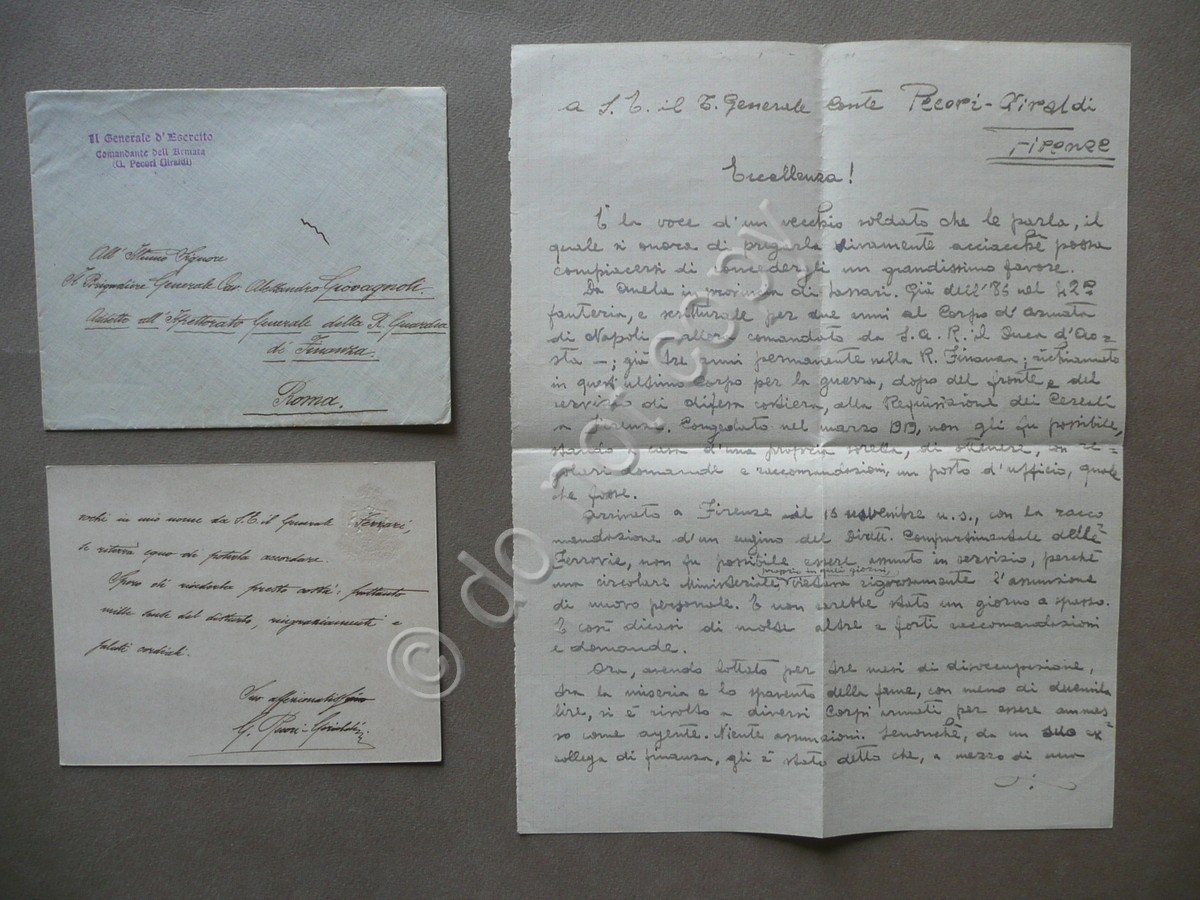 Il Generale d'Esercito
Comandante dell'Armata
(G. Pecori Giraldi)
All' Illmo Signore
Il Brigadiere Generale Cav. Alessandro Giovagnoli.
Addetto all' Ispettorato Generale della R. Guardia
di Finanza.
Roma.
in mio nome da S. E. il Generale Ferrari,
le riterrà equo di poterla accordare.
Spero di rivederla presto costà: frattanto
mille scuse del disturbo, ringraziamenti e
saluti cordiali.
Suo affezionatissimo
G. Pecori-Giraldi
a S. E. il T. Generale Conte Pecori-Giraldi
Firenze
Eccellenza!
È la voce d'un vecchio soldato che le parla, il
quale si onora di pregarla vivamente acciacchè possa
compiacersi di concedergli un grandissimo favore.
Da in provincia di Sassari. Già dell'86 nel 42º
fanteria, e scritturale per due anni al Corpo d'Armata
di Napoli - allora comandato da S. A. R. il Duca d'Ao-
sta -; già tre anni permanente nella R. Finanza; richiamato
in quest'ultimo Corpo per la guerra, dopo del fronte e del
servizio di difesa costiera, alla Requisizione dei Cereali
a Firenze. Congedato nel marzo 1919, non gli fu possibile,
stando a casa d'una propria sorella, di ottenere, con re-
golari domande e raccomandazioni, un posto d'ufficio, quale
che fosse.
Arrivato a Firenze il 15 novembre u. s., con la racco
mandazione d'un cugino del Dirett. Compartimentale delle
Ferrovie, non fu possibile essere assunto in servizio, perchè
proprio in quei giorni
una circolare Ministeriale vietava rigorosamente l'assunzione
di nuovo personale. E non sarebbe stato un giorno a spasso.
E così dicasi di molte altre e forti raccomandazioni
e domande.
Ora, avendo lottato per tre mesi di disoccupazione,
tra la miseria e lo spavento della fame, con meno di duemila
lire, si è rivolto a diversi Corpi armati per essere ammes-
so come agente. Niente assunzioni. Senonchè, da un suo ex
collega di finanza, gli è stato detto che, a mezzo di una
© do not copy